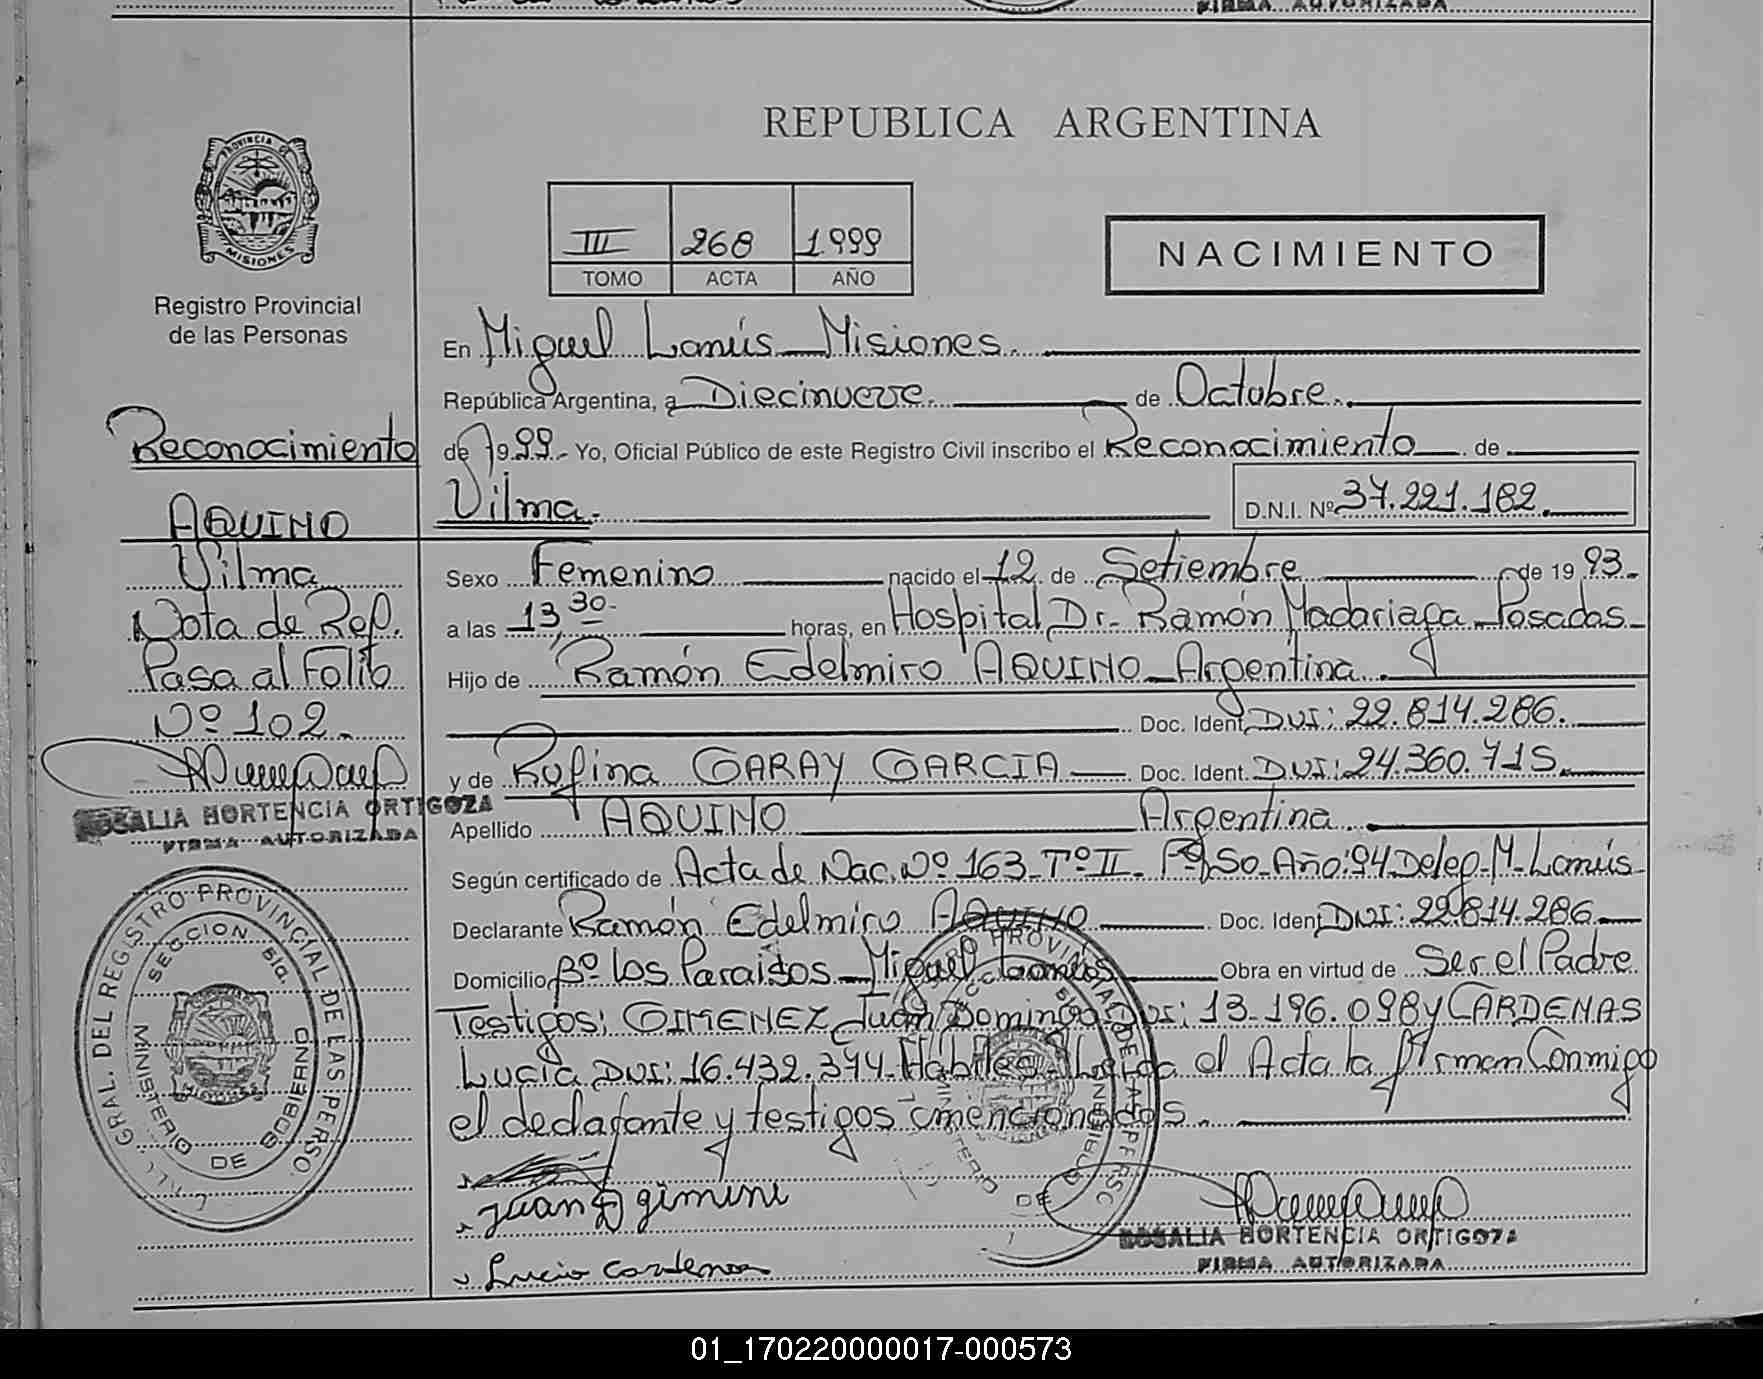 FIRMA AUTORIZADA
REPUBLICA ARGENTINA
PROVINCIA DE
MISIONES
III 268 1.999
TOMO ACTA AÑO
NACIMIENTO
Registro Provincial
de las Personas
En Miguel Lanús - Misiones.
República Argentina, a Diecinueve. de Octubre.
Reconocimiento
de 1999.- Yo, Oficial Público de este Registro Civil inscribo el Reconocimiento de
Vilma.- D.N.I. Nº 37.221.182.
AQUINO
Vilma
Sexo Femenino nacido el 12 de Setiembre de 19 93.-
Nota de Ref.
a las 13,30.- horas, en Hospital Dr. Ramón Madariaga - Posadas -
Pasa al Folio
Hijo de Ramón Edelmiro AQUINO - Argentina.
Nº 102.
Doc. Ident. DNI: 22.814.286.
y de Rufina GARAY GARCIA Doc. Ident. DNI: 24.360.715.
ROSALIA HORTENCIA ORTIGOZA
FIRMA AUTORIZADA
Apellido AQUINO Argentina.
Según certificado de Acta de Nac. Nº 163 - Tº II - Fº 50 - Año: 94 Deleg. M. Lanús
Declarante Ramón Edelmiro AQUINO Doc. Ident. DNI: 22.814.286
Domicilio Bº los Paraisos - Miguel Lanús Obra en virtud de Ser el Padre
Testigos: GIMENEZ Juan Domingo DNI: 13.196.098 y CARDENAS
Lucía DNI: 16.432.374. Habiles. Leída el Acta la firman Conmigo
el declarante y testigos mencionados.
GRAL. DEL REGISTRO PROVINCIAL DE LAS PERSO
SECCION Bla.
MINISTERIO DE GOBIERNO
juan D gimini
Lucia Cardenas
ROSALIA HORTENCIA ORTIGOZA
FIRMA AUTORIZADA
01_170220000017-000573